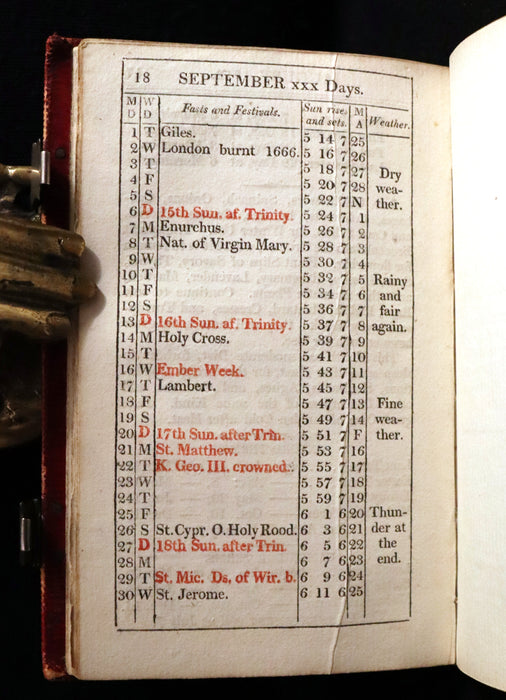 18 SEPTEMBER xxx Days.
M D W D Fasts and Festivals. Sun rises and sets. M A Weather.
1 T Giles. 5 14 7 25
2 W London burnt 1666. 5 16 7 26
3 T 5 18 7 27 Dry
4 F 5 20 7 28 wea-
5 S 5 22 7 N ther.
6 D 15th Sun. af. Trinity. 5 24 7 1
7 M Enurchus. 5 26 7 2
8 T Nat. of Virgin Mary. 5 28 7 3
9 W 5 30 7 4
10 T 5 32 7 5 Rainy
11 F 5 34 7 6 and
12 S 5 36 7 7 fair
13 D 16th Sun. af. Trinity. 5 37 7 8 again.
14 M Holy Cross. 5 39 7 9
15 T 5 41 7 10
16 W Ember Week. 5 43 7 11
17 T Lambert. 5 45 7 12
18 F 5 47 7 13 Fine
19 S 5 49 7 14 wea-
20 D 17th Sun. after Trin. 5 51 7 F ther.
21 M St. Matthew. 5 53 7 16
22 T K. Geo. III. crowned. 5 55 7 17
23 W 5 57 7 18
24 T 5 59 7 19
25 F 6 1 6 20 Thun-
26 S St. Cypr. O. Holy Rood. 6 3 6 21 der at
27 D 18th Sun. after Trin. 6 5 6 22 the
28 M 6 7 6 23 end.
29 T St. Mic. Ds. of Wir. b. 6 9 6 24
30 W St. Jerome. 6 11 6 25